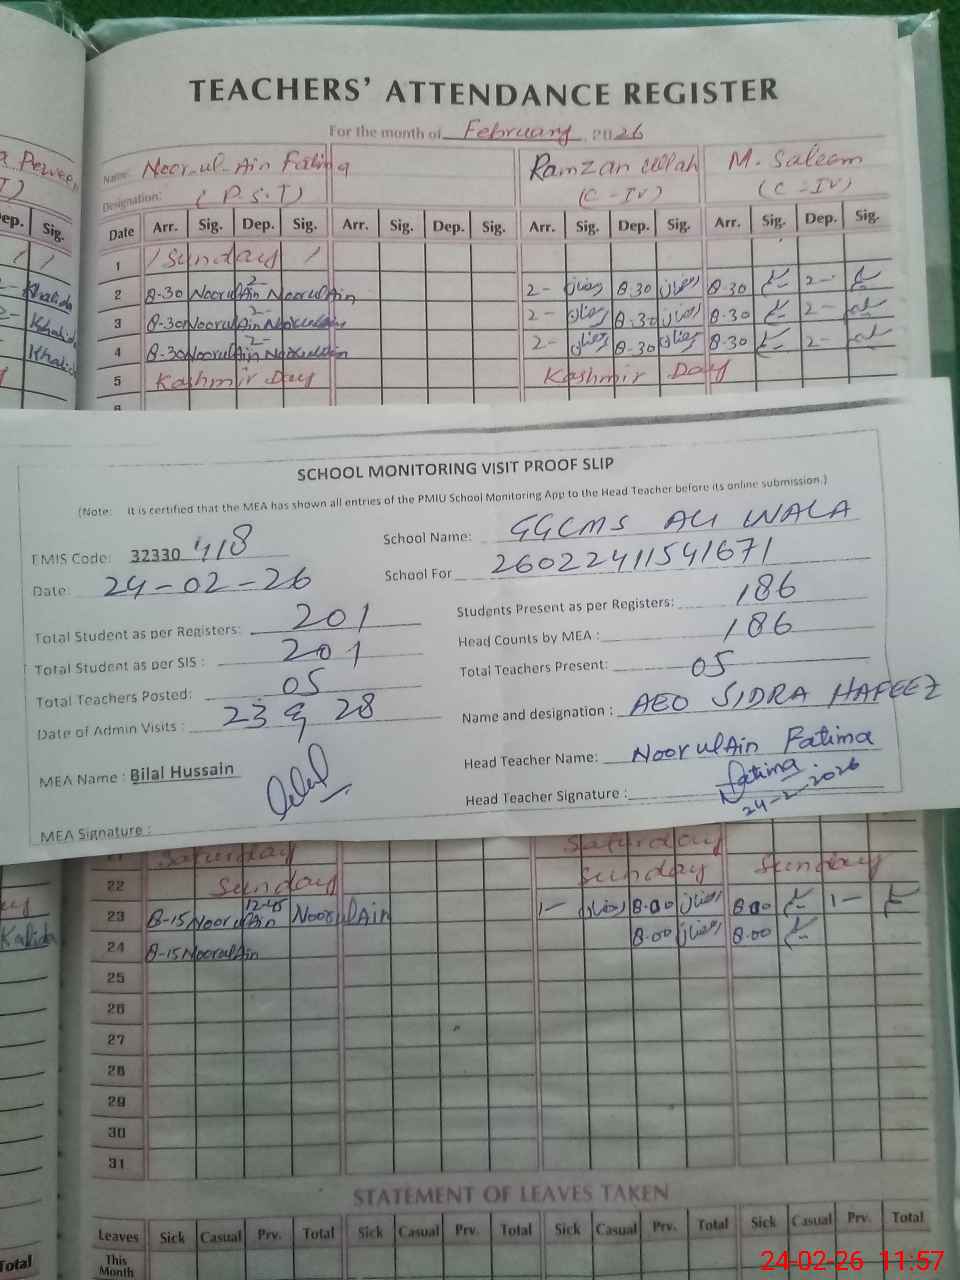 TEACHERS' ATTENDANCE REGISTER
For the month of February 2026
Name: Noor-ul-Ain Fatima Ramzan ullah M. Saleem
Designation: (P.S.T) (C-IV) (C-IV)
Date Arr. Sig. Dep. Sig. Arr. Sig. Dep. Sig. Arr. Sig. Dep. Sig. Arr. Sig. Dep. Sig.
Dep. Sig.
1 Sunday
2 8-30 NoorulAin 2- NoorulAin 2- رمضان 8.30 رمضان 8.30 2-
Khalida
3 8-30 NoorulAin 2- NoorulAin 2- رمضان 8.30 رمضان 8.30 2-
Khalida
4 8-30 NoorulAin 2- NoorulAin 2- رمضان 8-30 رمضان 8.30 2-
Khalida
5 Kashmir Day Kashmir Day
SCHOOL MONITORING VISIT PROOF SLIP
(Note: It is certified that the MEA has shown all entries of the PMIU School Monitoring App to the Head Teacher before its online submission.)
EMIS Code: 32330 418 School Name: GGCMS ALI WALA
Date: 24-02-26 School For 26022411541671
Total Student as per Registers: 201 Students Present as per Registers: 186
Total Student as per SIS : 201 Head Counts by MEA : 186
Total Teachers Posted: 05 Total Teachers Present: 05
Date of Admin Visits : 23 & 28 Name and designation : AEO SIDRA HAFEEZ
MEA Name : Bilal Hussain Head Teacher Name: NoorulAin Fatima
MEA Signature : Head Teacher Signature : Fatima
24-2-2026
21 Saturday Saturday
22 Sunday Sunday Sunday
23 8-15 NoorulAin 12-45 NoorulAin 1- رمضان 8.00 رمضان 8.00 1-
24 8-15 NoorulAin 8.00 رمضان 8.00
Kalida
25
26
27
28
29
30
31
STATEMENT OF LEAVES TAKEN
Leaves Sick Casual Prv. Total Sick Casual Prv. Total Sick Casual Prv. Total Sick Casual Prv. Total
This Month
Total
24-02-26 11:57